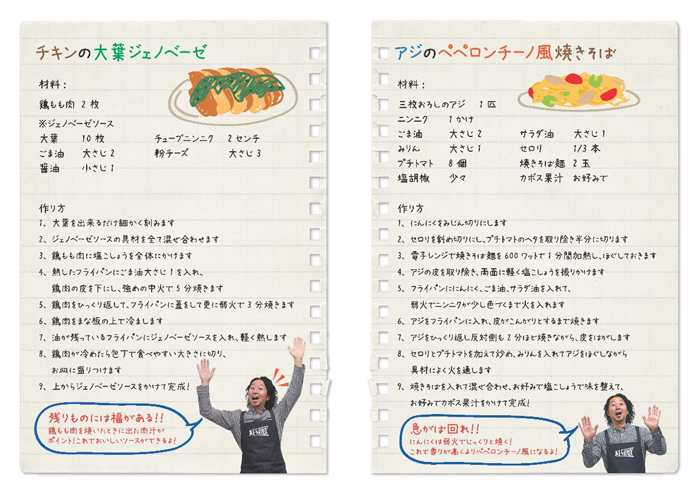 チキンの大葉ジェノベーゼ
材料:
鶏もも肉 2枚
※ジェノベーゼソース
大葉 10枚 チューブニンニク 2センチ
ごま油 大さじ2 粉チーズ 大さじ3
醤油 小さじ1
作り方
1、大葉を出来るだけ細かく刻みます
2、ジェノベーゼソースの具材を全て混ぜ合わせます
3、鶏もも肉に塩こしょうを全体にかけます
4、熱したフライパンにごま油大さじ1を入れ、
鶏肉の皮を下にし、強めの中火で5分焼きます
5、鶏肉をひっくり返して、フライパンに蓋をして更に弱火で3分焼きます
6、鶏肉をまな板の上で冷まします
7、油が残っているフライパンにジェノベーゼソースを入れ、軽く熱します
8、鶏肉が冷めたら包丁で食べやすい大きさに切り、
お皿に盛りつけます
9、上からジェノベーゼソースをかけて完成!
残りものには福がある!!
鶏もも肉を焼いたときに出た肉汁が
ポイント!これでおいしいソースができるよ!
アジのペペロンチーノ風焼きそば
材料:
三枚おろしのアジ 1匹
ニンニク 1かけ
ごま油 大さじ2 サラダ油 大さじ1
みりん 大さじ1 セロリ 1/3本
プチトマト 8個 焼きそば麺 2玉
塩胡椒 少々 カボス果汁 お好みで
作り方
1、にんにくをみじん切りにします
2、セロリを斜め切りにし、プチトマトのヘタを取り除き半分に切ります
3、電子レンジで焼きそば麺を600ワットで1分間加熱し、ほぐしておきます
4、アジの皮を取り除き、両面に軽く塩こしょうを振りかけます
5、フライパンににんにく、ごま油、サラダ油を入れて、
弱火でニンニクが少し色づくまで火を入れます
6、アジをフライパンに入れ、皮がこんがりとするまで焼きます
7、アジをひっくり返し反対側も2分ほど焼きながら、皮をはがします
8、セロリとプチトマトを加えて炒め、みりんを入れてアジをほぐしながら
具材によく火を通します
9、焼きそばを入れて混ぜ合わせ、お好みで塩こしょうで味を整えて、
お好みでカボス果汁をかけて完成!
急がば回れ!!
にんにくは弱火でじっくりと焼く!
これで香りが高くよりペペロンチーノ風になるよ!